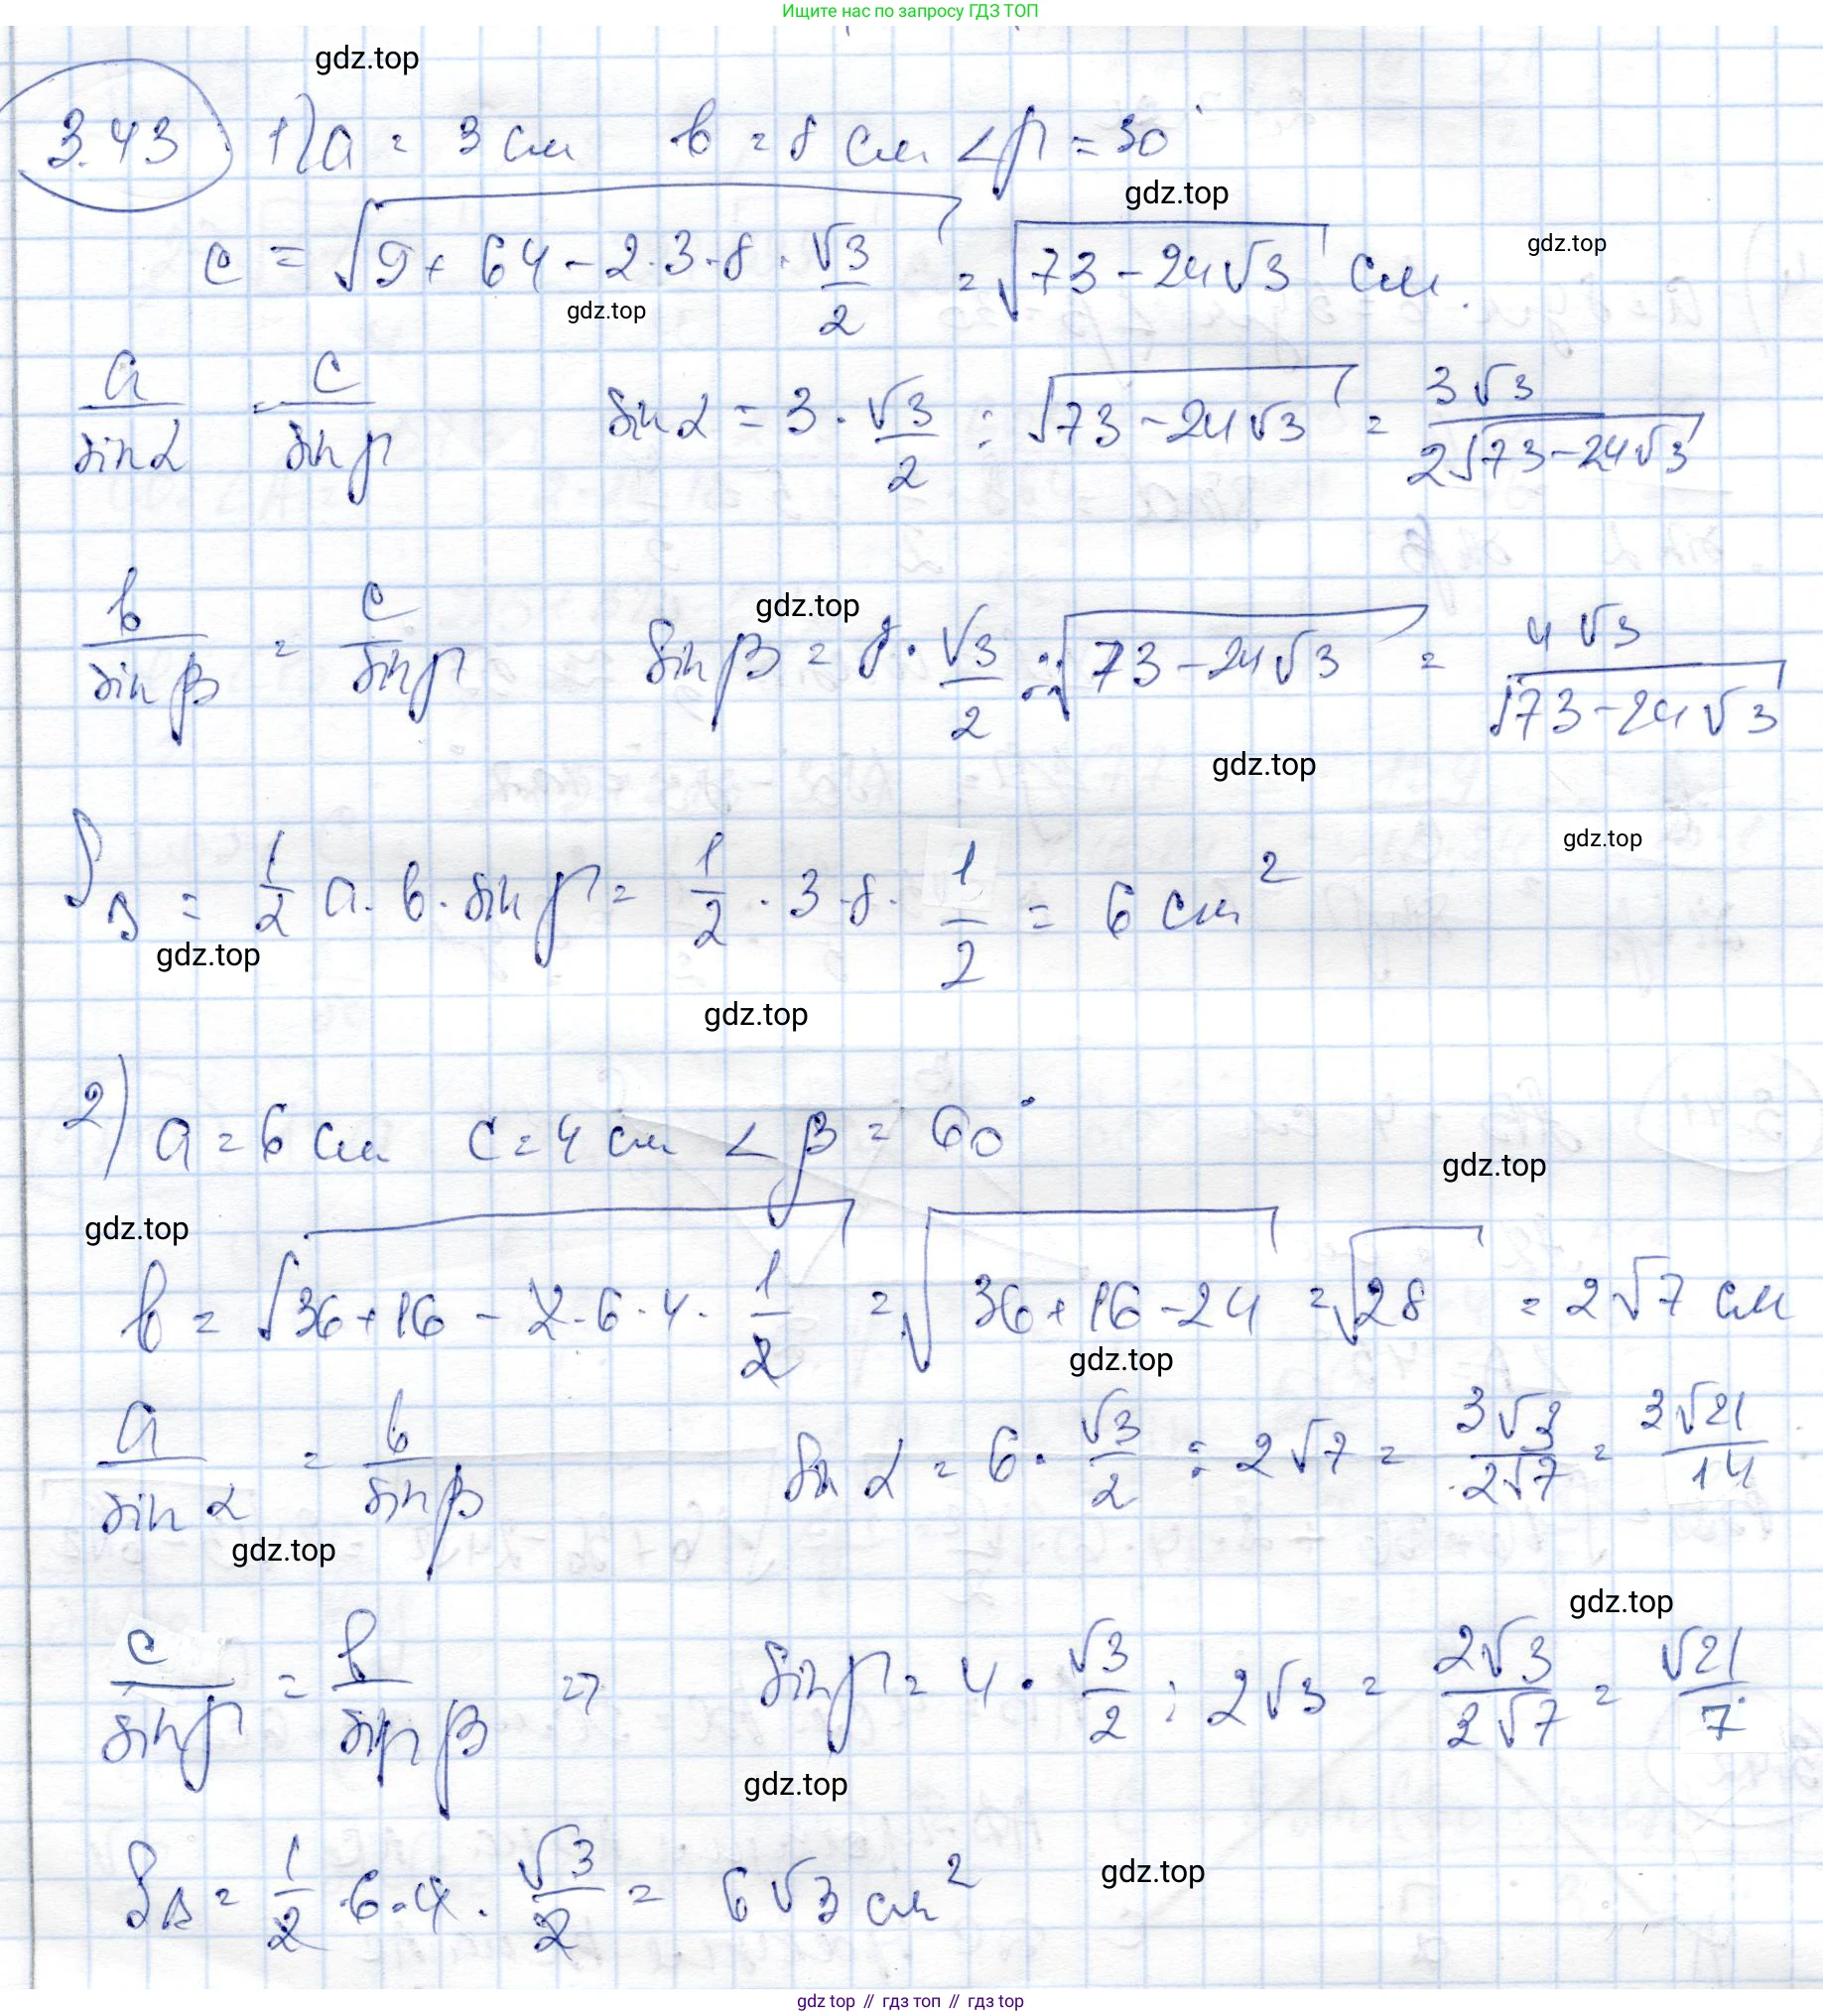 Ищите нас по запросу ГДЗ ТОП
gdz.top
3.43 1) a = 3 см b = 8 см ∠γ = 30°
gdz.top
c = √(9 + 64 - 2·3·8·√3/2) = √(73 - 24√3) см.
gdz.top
gdz.top
a/sinα = c/sinγ sinα = 3·√3/2 : √(73 - 24√3) = 3√3/(2√(73 - 24√3))
gdz.top
b/sinβ = c/sinγ sinβ = 8·√3/2 : √(73 - 24√3) = 4√3/√(73 - 24√3)
gdz.top
gdz.top
S_Δ = 1/2 a·b·sinγ = 1/2·3·8·1/2 = 6 см²
gdz.top
gdz.top
2) a = 6 см c = 4 см ∠β = 60°
gdz.top
gdz.top
b = √(36 + 16 - 2·6·4·1/2) = √(36 + 16 - 24) = √28 = 2√7 см
gdz.top
a/sinα = b/sinβ sinα = 6·√3/2 : 2√7 = 3√3/2√7 = 3√21/14
gdz.top
gdz.top
c/sinγ = b/sinβ => sinγ = 4·√3/2 : 2√3 = 2√3/2√7 = √21/7
gdz.top
S_Δ = 1/2·6·4·√3/2 = 6√3 см²
gdz.top
gdz top // гдз топ // гдз top